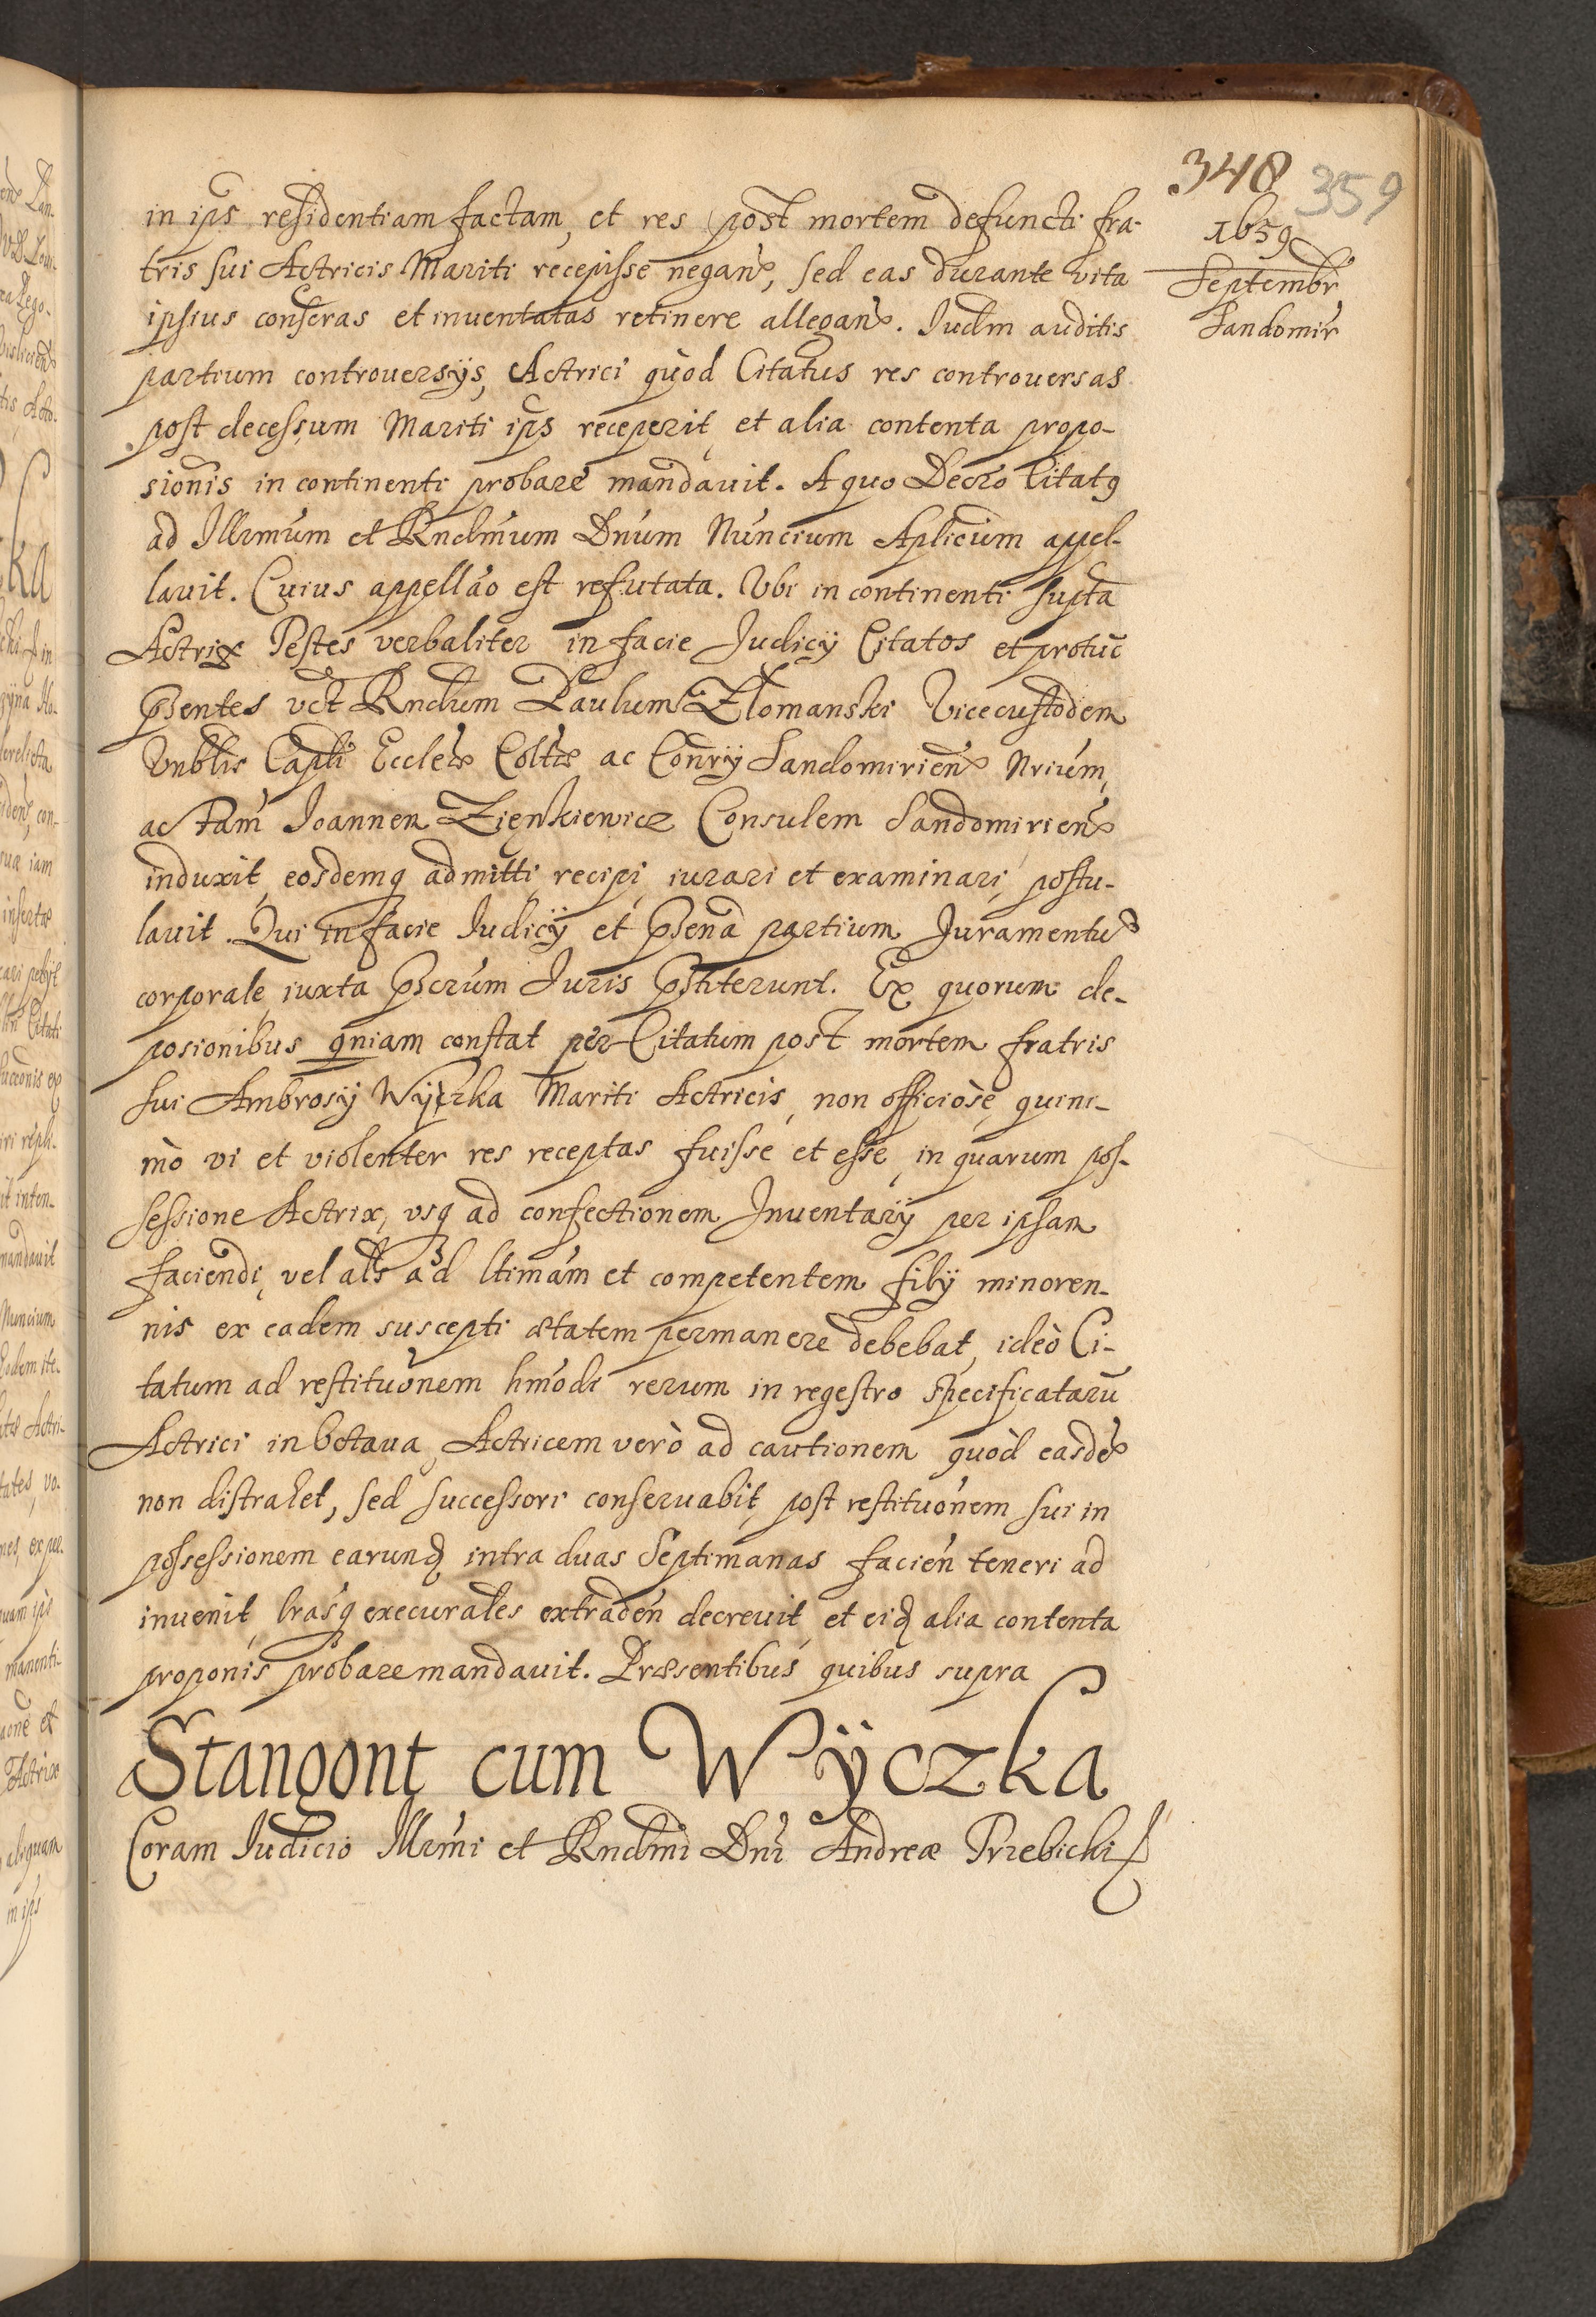 348 359
1659
Septembr
Sandomir
in ips residentiam factam, et res post mortem defuncti fra-
tris sui Actricis Mariti recepisse negan, sed eas durante vita
ipsius conseras et inuentatas retinere allegan. Iudm auditis
partium controuersÿs, Actrici quòd Citatus res controuersas
post decessum Mariti ips receperit, et alia contenta propo-
sionis in continenti probare mandauit. A quo Decro Citatq
ad Illrmum et Rndmum Dnum Nuncium Aplicum appel-
lauit. Cuius appellao est refutata. Vbi in continenti supta
Actrix Testes verbaliter in facie Judicÿ Citatos et protuc
psentes vct Rndum Paulum Złomanski Vicecustodem
Vnblis Capli Eccleæ Coltæ ac Conrÿ Sandomirien Nrium,
ac Fam Joannem Zięnkiewicz Consulem Sandomirien
induxit, eosdemq admitti, recipi, iurari et examinari, postu-
lauit. Qui in facie Iudicÿ et psena partium Juramentu
corporale, iuxta pscrum Iuris pstiterunt. Ex quorum de-
posionibus qniam constat per Citatum post mortem fratris
sui Ambrosÿ Wÿczka Mariti Actricis, non officiòse, quini-
mò vi et violenter res receptas fuisse et esse, in quarum pos-
sessione Actrix, vsq ad confectionem Inuentarÿ per ipsam
faciendi, vel als ad ltimam et competentem filÿ minoren-
nis ex eadem suscepti ætatem permanere debebat, ideò Ci-
tatum ad restituonem hmodi rerum in regestro specificataru
Actrici in octaua, Actricem verò ad cautionem quòd easde
non distrahet, sed successori conseruabit, post restituonem sui in
possessionem earund intra duas Septimanas facien teneri ad
inuenit, lrasq execurales extraden decreuit, et eid alia contenta
proponis probare mandauit. Præsentibus quibus supra
Stangont cum Wÿczka
Coram Iudicio Illrmi et Rndmi Dni Andreæ Trzebicki